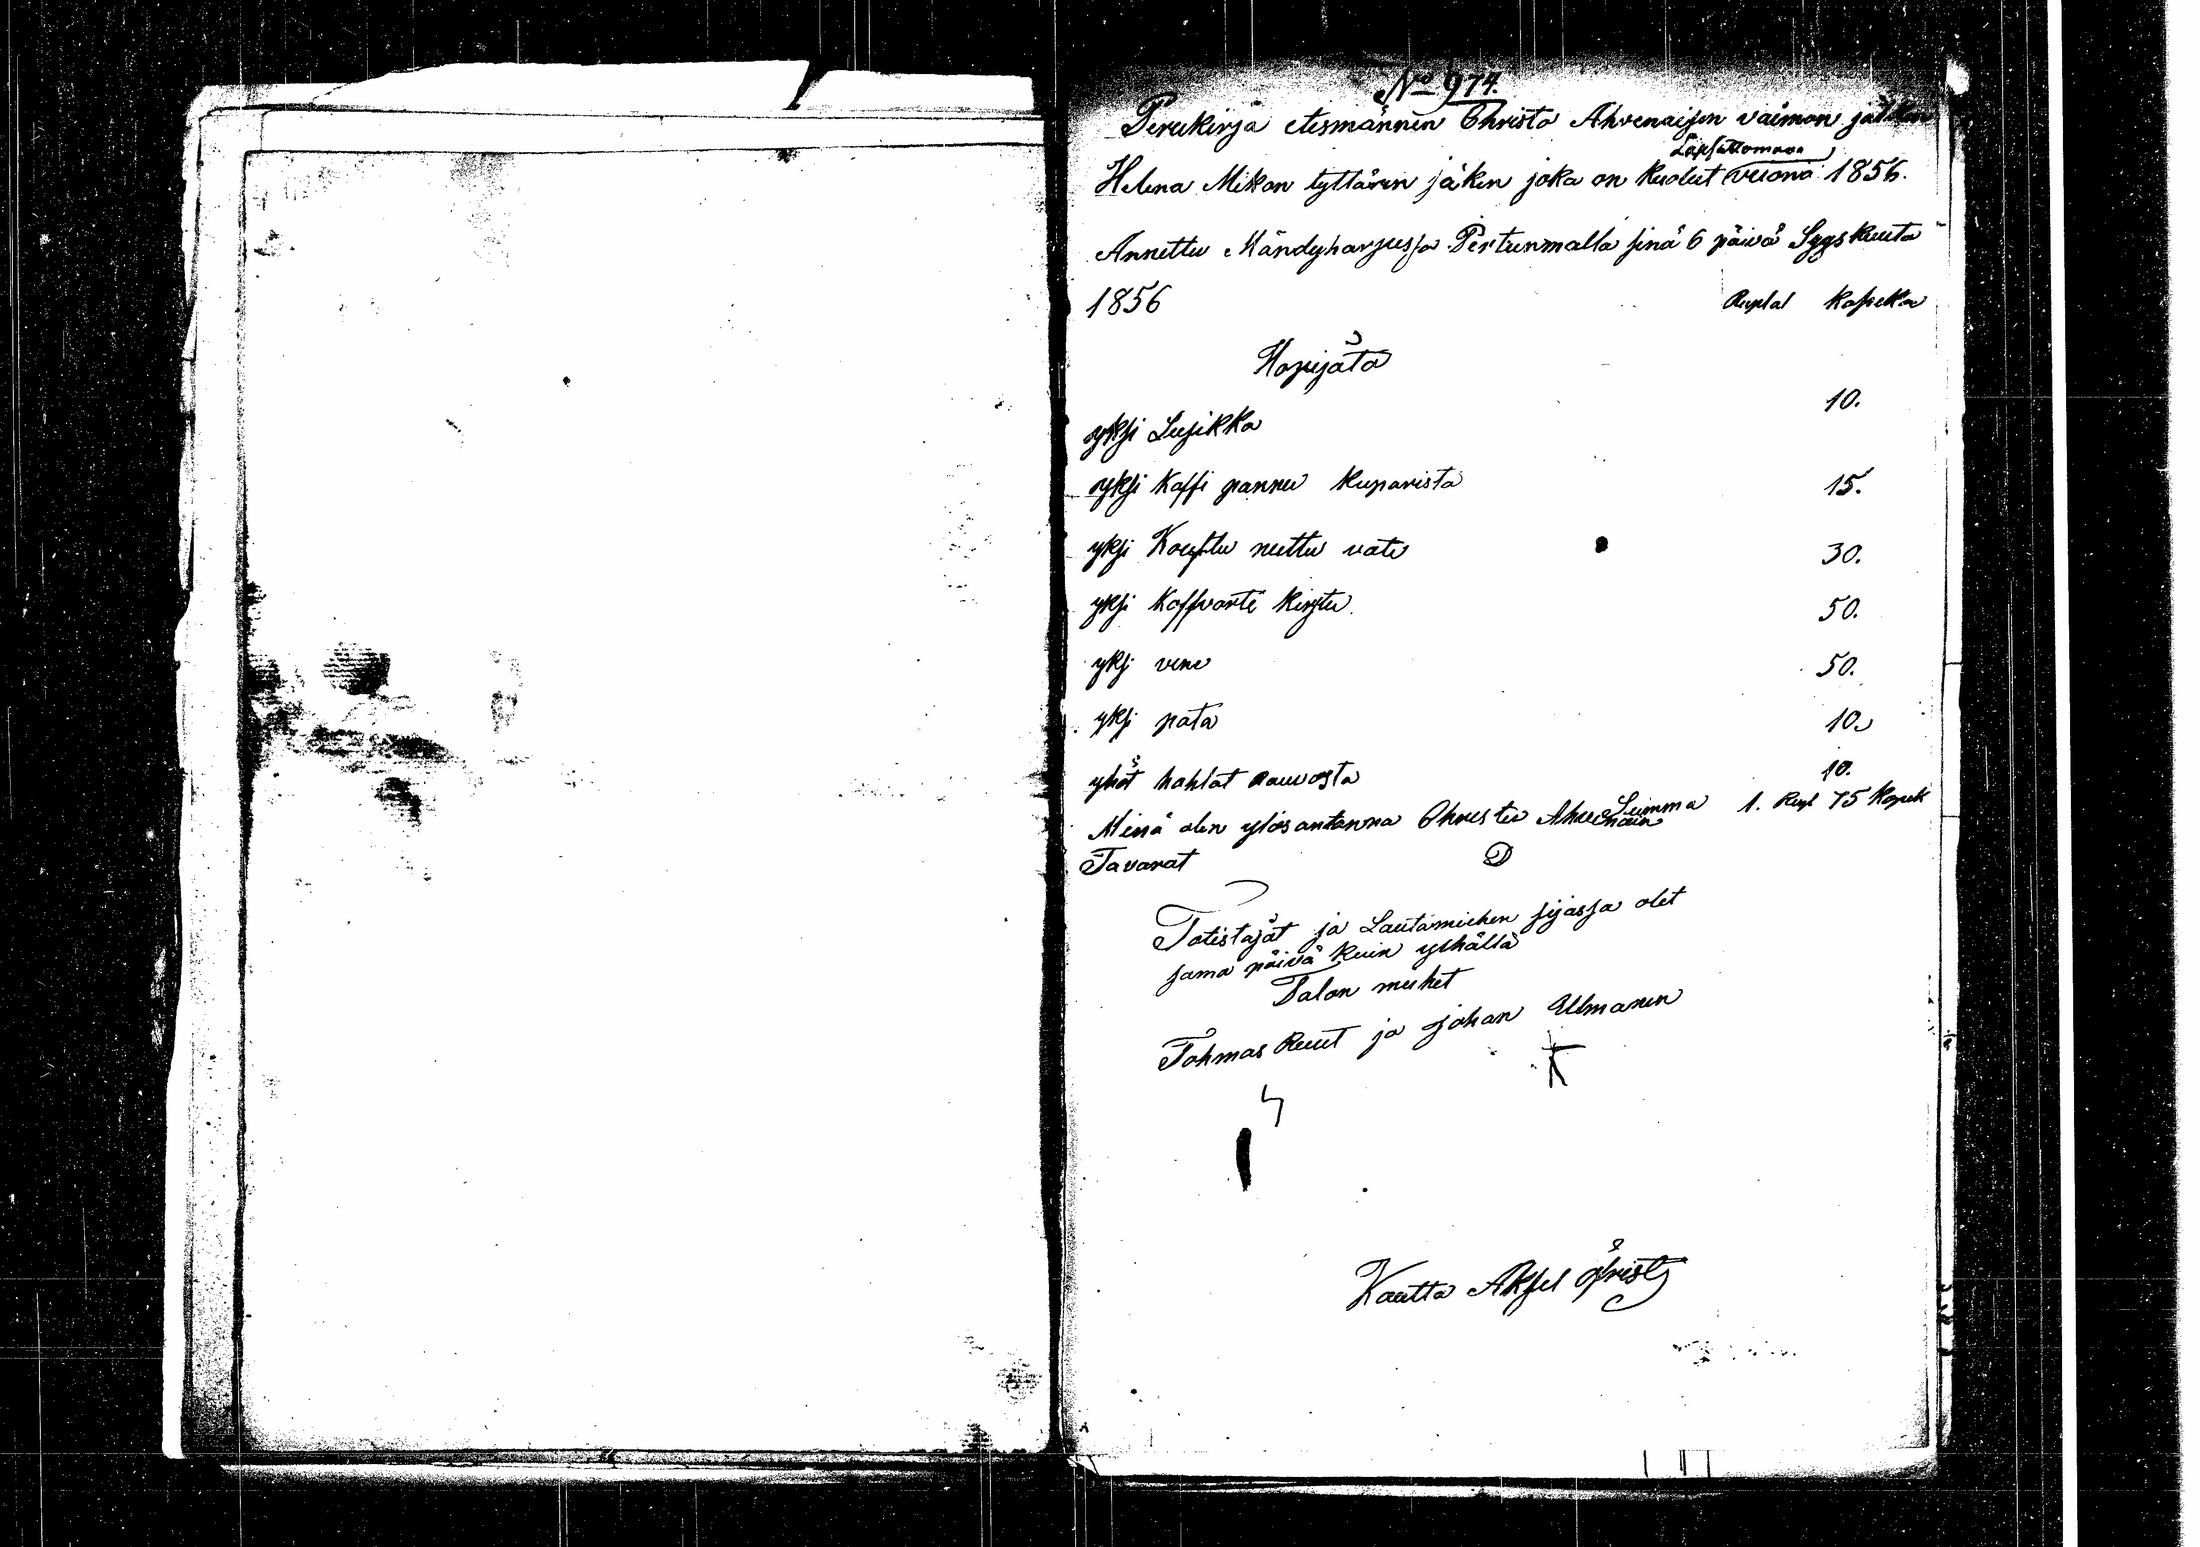 No 974.
Perukirja etesmännen Christo Ahvenaisen vaimon jälken
Lapsettomana
Helena Mikon tyttären jäken joka on kuolut vuona 1856.
Annettu Mändyharjussa Pertunmalla sinä 6 päivä Syyskuuta
1856 Ruplat kopekka
Hopijata
yksi Lusikka 10.
yksi Kaffi pannu kuparista 15.
yksi Kouftu nuttu vate 30.
yksi Kaffvarti kirstu 50.
yksi vene 50.
yksi pata 10.
yhöt hahlat rauvasta 10.
Summa 1. Rupl 75 kopek
Minä olen ylosantanna Christu Ahvenain
Tavarat
Totistajat ja Lautamiehen sijassa olet
sama päivä kuin yshällä
Talon miehet
Tohmas Ruut ja Johan Ulmanen
Kautta Aksel